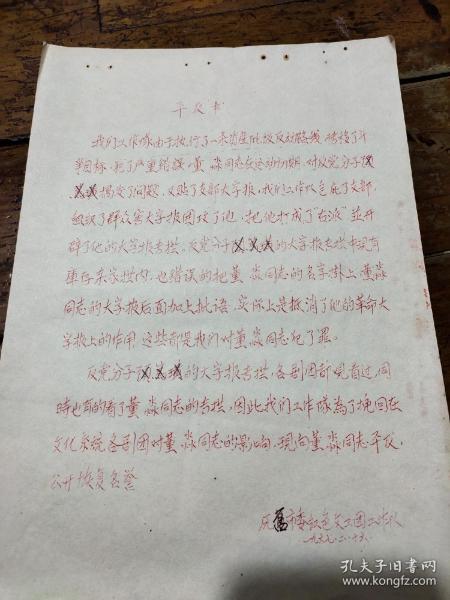 平反书
我们工作队由于执行了一条资产阶级反动路线，转移了斗
争目标，犯了严重错误，董淼同志在运动初期，对反党分子
揭发了问题，又贴了支部大字报，我们工作队包庇了支部，
组织了群众写大字报围攻了他，把他打成了“右派”並开
辟了他的大字报专拦。反党分子的大字报专拦中没有
也错误的把董淼同志的名字掛上董淼
同志的大字报后面加上批语，实际上是抵消了他的革命大
字报上的作用，这些都是我们对董淼同志犯了罪。
反党分子的大字报专拦，各剧团都观看过，同
时也有的看了董淼同志的专拦，因此我们工作隊為了挽回在
文化系统各剧团对董淼同志的影响，现向董淼同志平反，
公开恢复名誉
市委红色文工团工作队
一九六七.二.十六.
孔夫子旧书网
www.kongfz.com